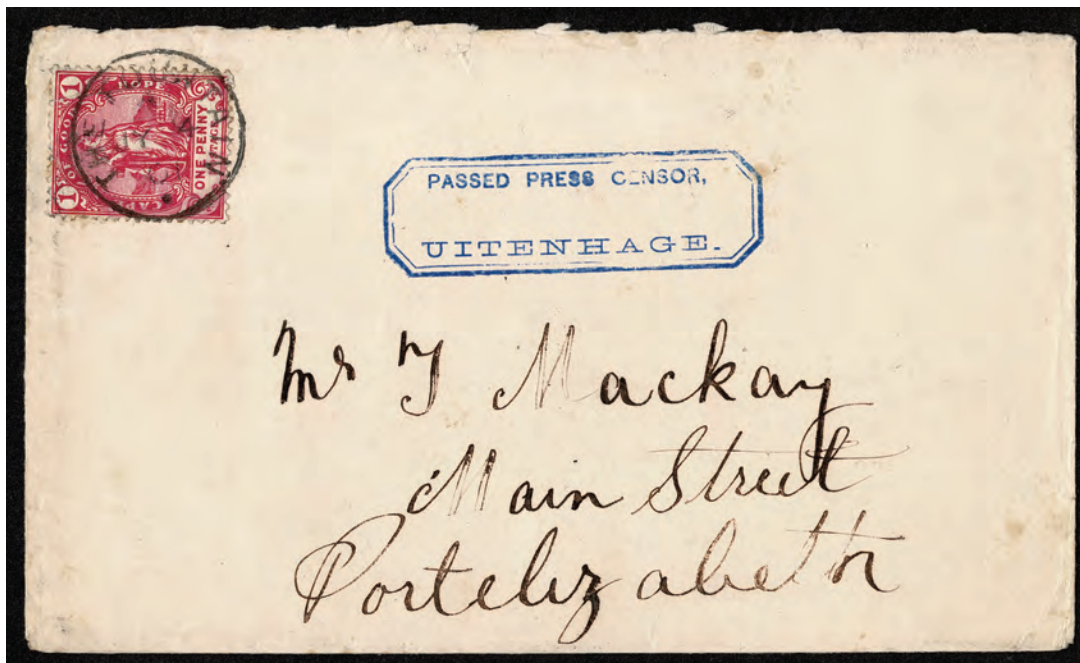 CAPE OF GOOD HOPE
1 1
POSTAGE
ONE PENNY
JY
PASSED PRESS CENSOR,
UITENHAGE.
Mr J Mackay
Main Street
Portelizabeth